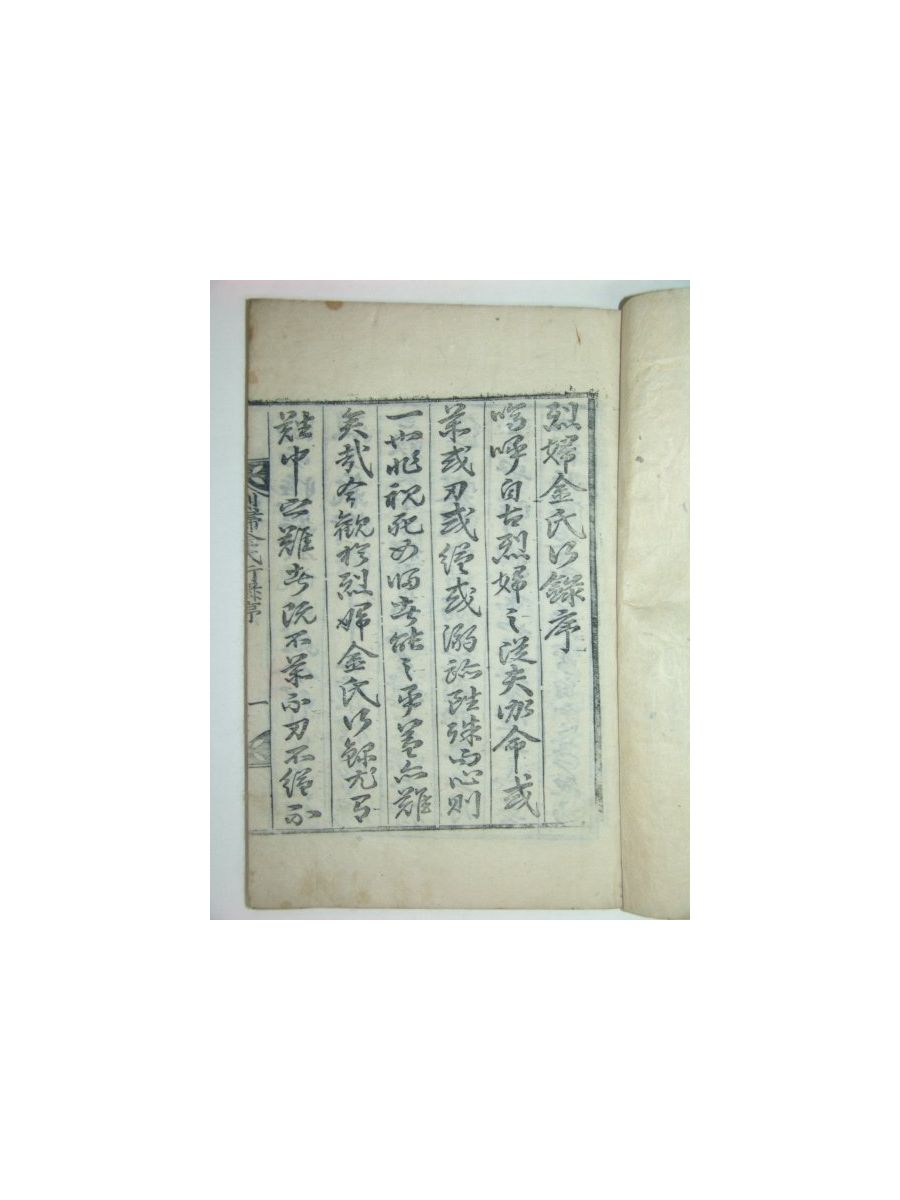 烈婦金氏行錄序
嗚呼自古烈婦之從夫殉命或
藥或刃或縊或溺跡雖殊而心則
一也非視死如歸者能之乎蓋亦難
矣哉今觀於烈婦金氏行錄尤有
難中之難者既不藥不刃不縊不
烈婦金氏行錄序 一